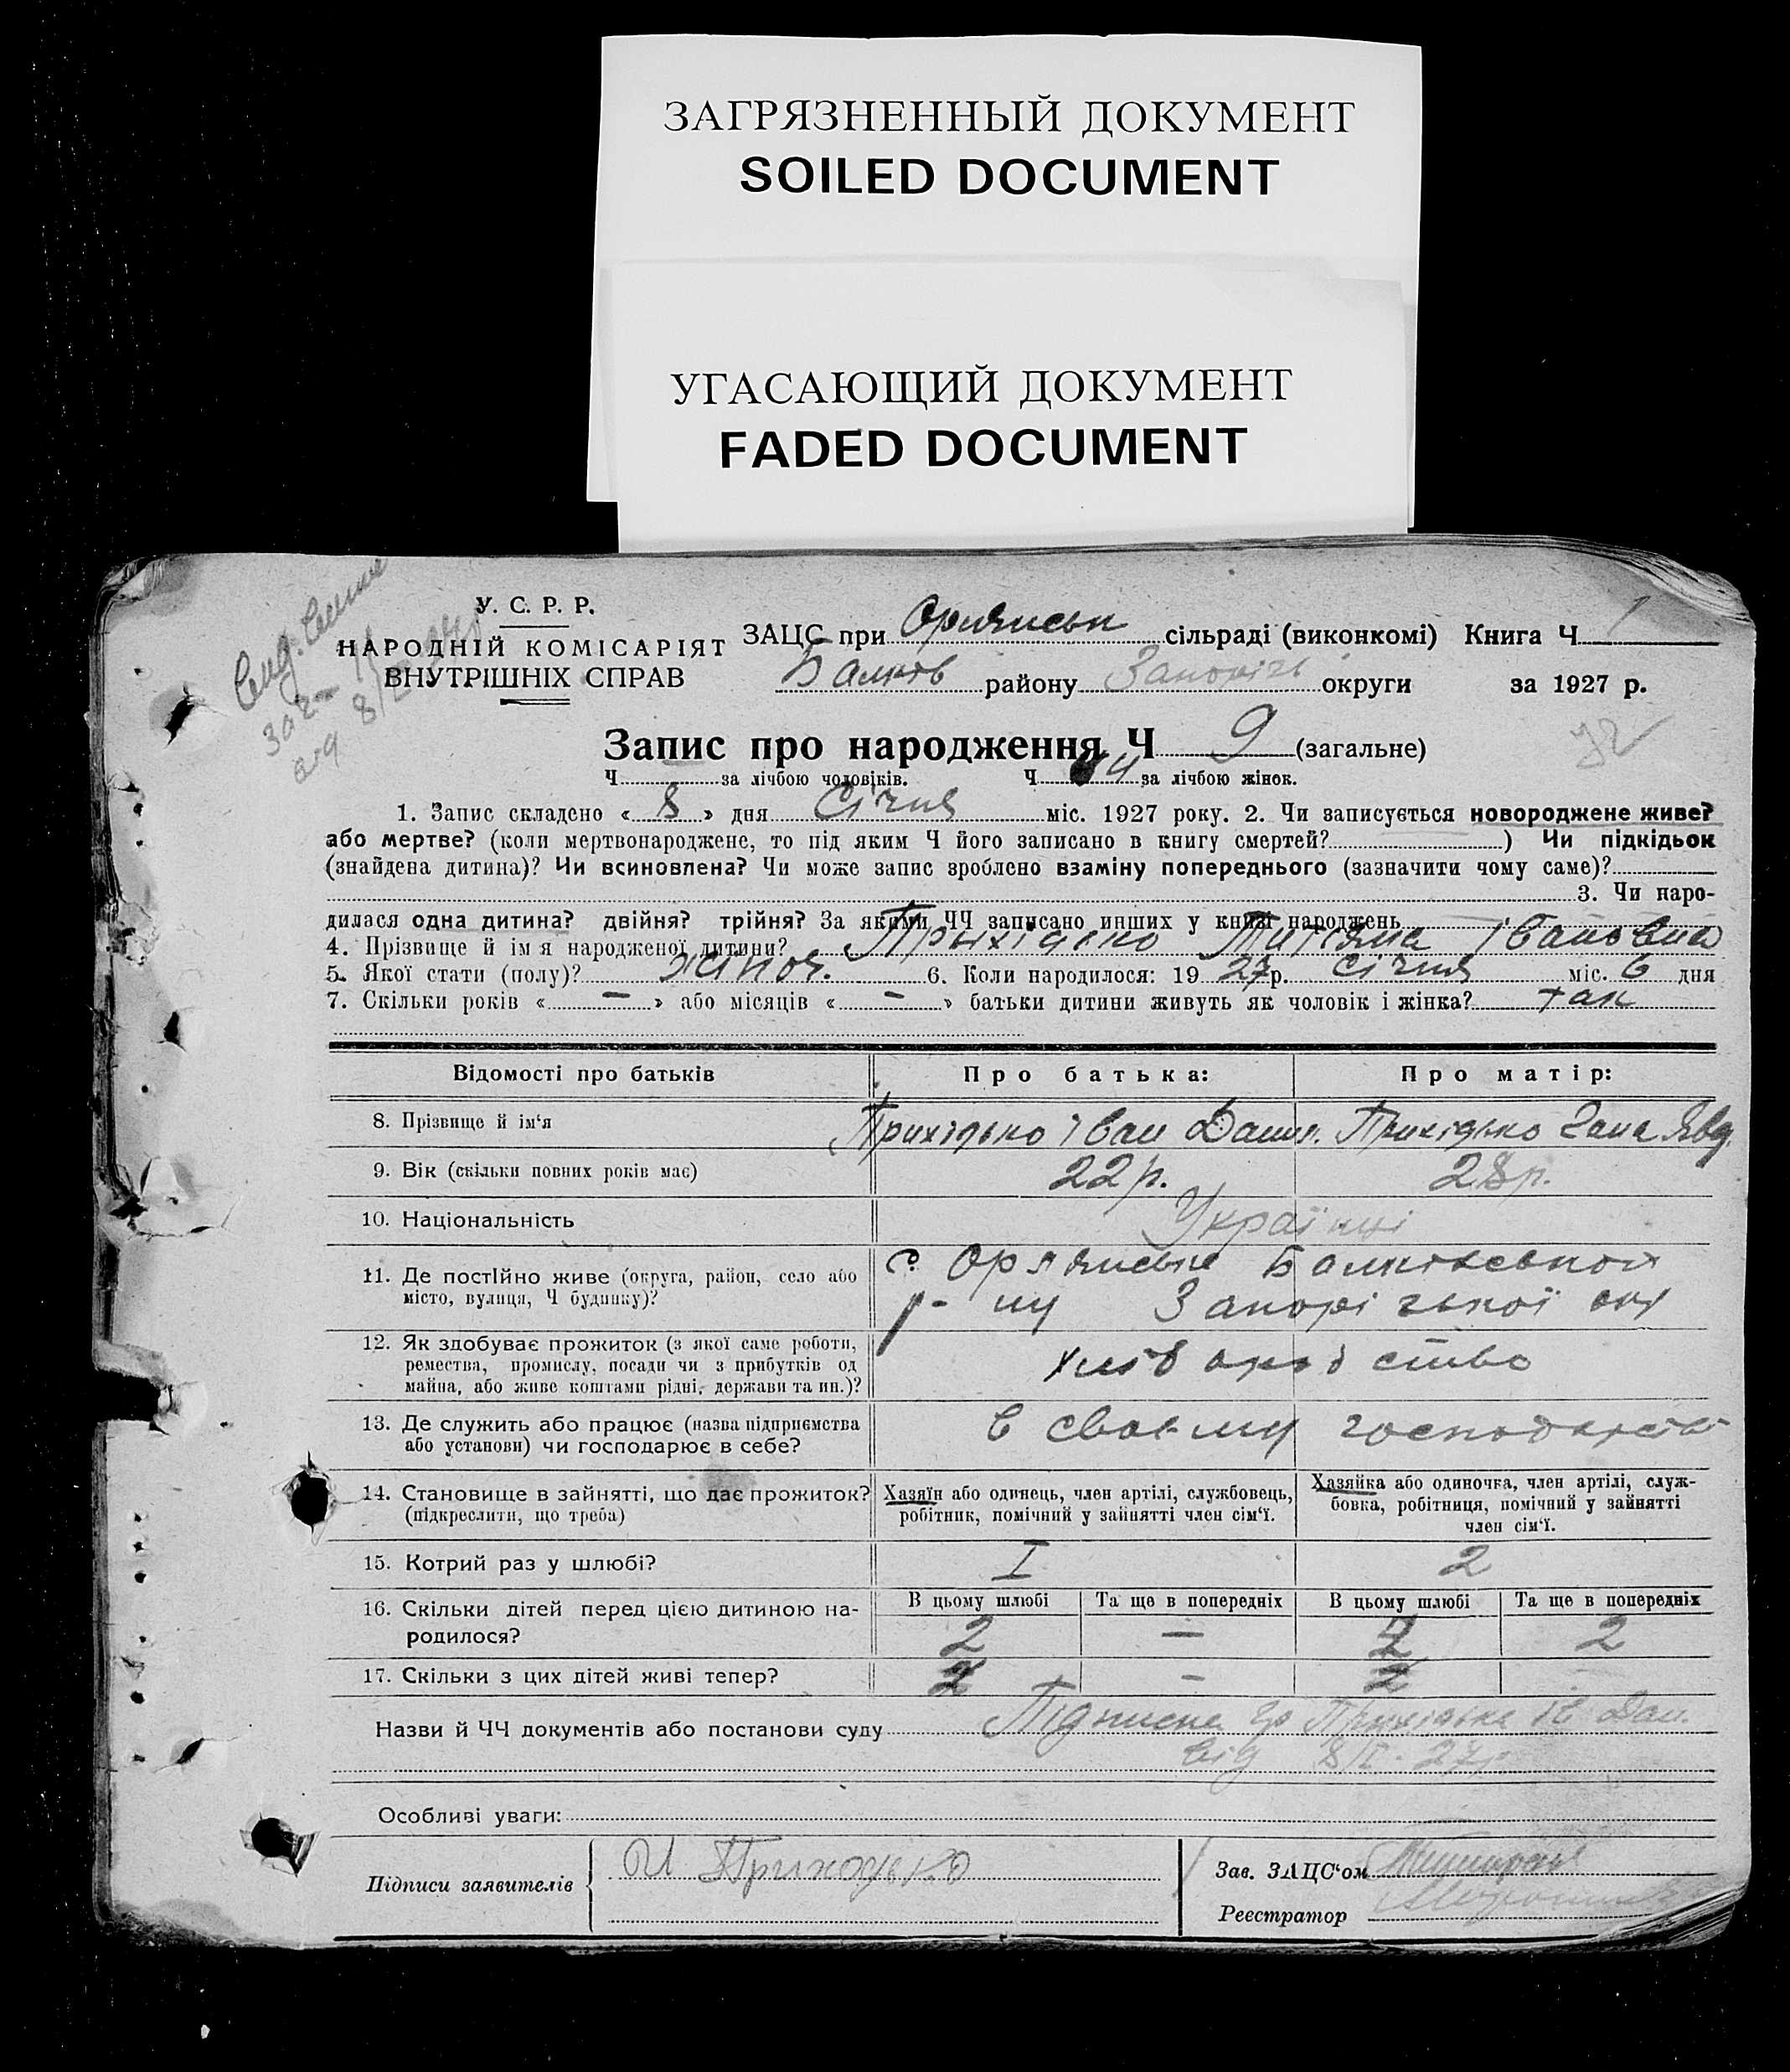 ЗАГРЯЗНЕННЫЙ ДОКУМЕНТ
SOILED DOCUMENT
УГАСАЮЩИЙ ДОКУМЕНТ
FADED DOCUMENT
У. С. Р. Р.
НАРОДНІЙ КОМІСАРІЯТ
ВНУТРІШНІХ СПРАВ
ЗАЦС при сільраді (виконкомі) Книга Ч 1
району Запорізь округи за 1927 р.
Запис про народження Ч 9 (загальне)
42
Ч за лічбою чоловіків. Ч 4 за лічбою жінок.
1. Запис складено « 8 » дня Січня міс. 1927 року. 2. Чи записується новороджене живе?
або мертве? (коли мертвонароджене, то під яким Ч його записано в книгу смертей? ) Чи підкідьок
(знайдена дитина)? Чи всиновлена? Чи може запис зроблено взаміну попереднього (зазначити чому саме)?
3. Чи наро-
дилася одна дитина? двійня? трійня? За якими ЧЧ записано инших у книзі народжень
4. Прізвище й ім я народженої дитини? Прыхідько Титяна Івановна
5. Якої стати (полу)? жіноч. 6. Коли народилося: 19 27 р. січня міс. 6 дня
7. Скільки років « — » або місяців « — » батьки дитини живуть як чоловік і жінка? так
Відомості про батьків Про батька: Про матір:
8. Прізвище й ім'я Прихідько Іван Данил. Прихідько Явд.
9. Вік (скільки повних років має) 22 р. 28 р.
10. Національність Українці
11. Де постійно живе (округа, район, село або
місто, вулиця, Ч будинку)?
с.
р-ну Запорізької окр
12. Як здобуває прожиток (з якої саме роботи,
ремества, промислу, посади чи з прибутків од
майна, або живе коштами рідні, держави та ин.)?
хліборобство
13. Де служить або працює (назва підприємства
або установи) чи господарює в себе?
в своему господарстві
14. Становище в зайнятті, що дає прожиток?
(підкреслити, що треба)
Хазяїн або одинець, член артілі, службовець,
робітник, помічний у зайнятті член сім'ї.
Хазяйка або одиночка, член артілі, служ-
бовка, робітниця, помічний у зайнятті
член сім'ї.
15. Котрий раз у шлюбі? I 2
16. Скільки дітей перед цією дитиною на-
родилося?
В цьому шлюбі Та ще в попередніх В цьому шлюбі Та ще в попередніх
2 — 2
17. Скільки з цих дітей живі тепер? 2 - 2 -
Назви й ЧЧ документів або постанови суду Підписка гр Прихідька Ів Дан.
від 8/I - 27р
Особливі уваги:
Підписи заявителів И Приходько
Зав. ЗАЦС'ом
Реестратор